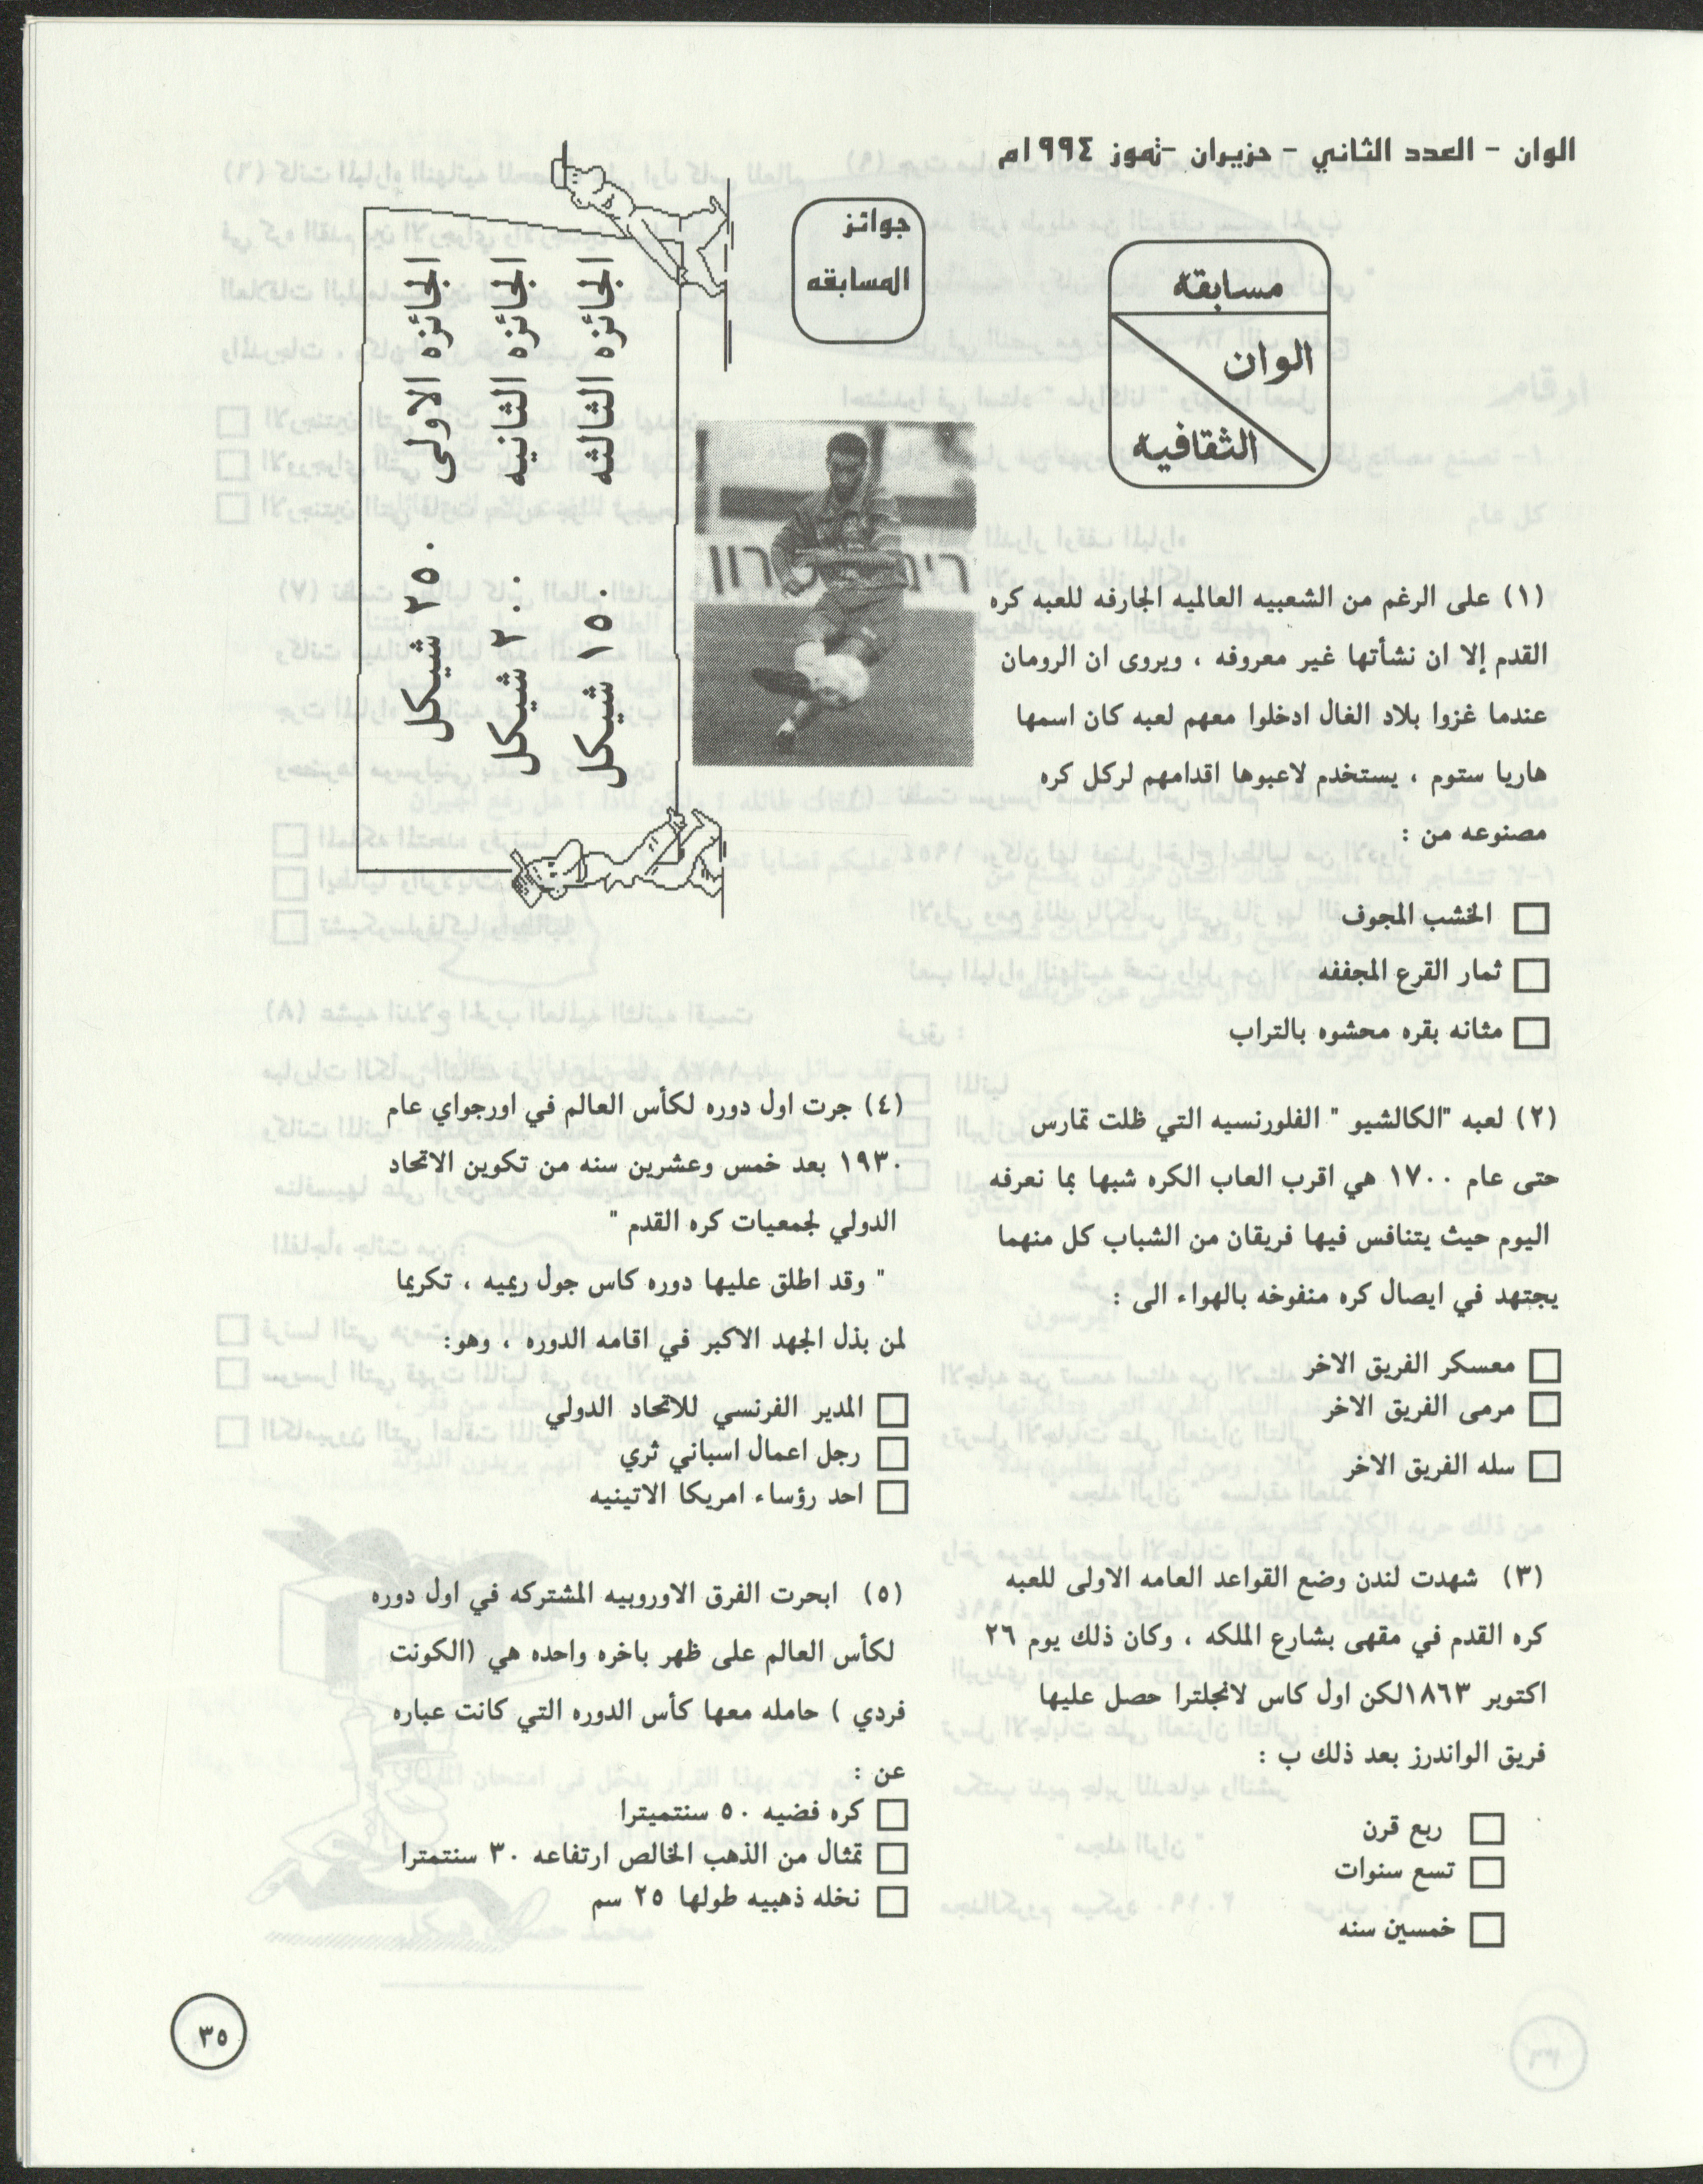 الوان - العدد الثاني - حزيران -تموز ١٩٩٤م
مسابقة
الوان
الثقافيه
جوائز
المسابقه
الجائزه الاولى ٢٥٠ شيكل
الجائزه الثانيه ٢٠٠ شيكل
الجائزه الثالثه ١٥٠ شيكل
(١) على الرغم من الشعبيه العالميه الجارفه للعبه كره
القدم إلا ان نشأتها غير معروفه ، ويروى ان الرومان
عندما غزوا بلاد الغال ادخلوا معهم لعبه كان اسمها
هاربا ستوم ، يستخدم لاعبوها اقدامهم لركل كره
مصنوعه من :
الخشب المجوف
ثمار القرع المجففه
مثانه بقره محشوه بالتراب
(٢) لعبه "الكالشيو " الفلورنسيه التي ظلت تمارس
حتى عام ١٧٠٠ هي اقرب العاب الكره شبها بما نعرفه
اليوم حيث يتنافس فيها فريقان من الشباب كل منهما
يجتهد في ايصال كره منفوخه بالهواء الى :
معسكر الفريق الاخر
مرمى الفريق الاخر
سله الفريق الاخر
(٣) شهدت لندن وضع القواعد العامه الاولى للعبه
كره القدم في مقهى بشارع الملكه ، وكان ذلك يوم ٢٦
اكتوبر ١٨٦٣لكن اول كاس لانجلترا حصل عليها
فريق الواندرز بعد ذلك ب :
ربع قرن
تسع سنوات
خمسين سنه
(٤) جرت اول دوره لكأس العالم في اورجواي عام
١٩٣٠ بعد خمس وعشرين سنه من تكوين الاتحاد
الدولي لجمعيات كره القدم "
" وقد اطلق عليها دوره كاس جول ريميه ، تكريما
لمن بذل الجهد الاكبر في اقامه الدوره ، وهو:
المدير الفرنسي للاتحاد الدولي
رجل اعمال اسباني ثري
احد رؤساء امريكا الاتينيه
(٥) ابحرت الفرق الاوروبيه المشتركه في اول دوره
لكأس العالم على ظهر باخره واحده هي (الكونت
فردي ) حامله معها كأس الدوره التي كانت عباره
عن :
كره فضيه ٥٠ سنتميترا
تمثال من الذهب الخالص ارتفاعه ٣٠ سنتمترا
نخله ذهبيه طولها ٢٥ سم
٣٥